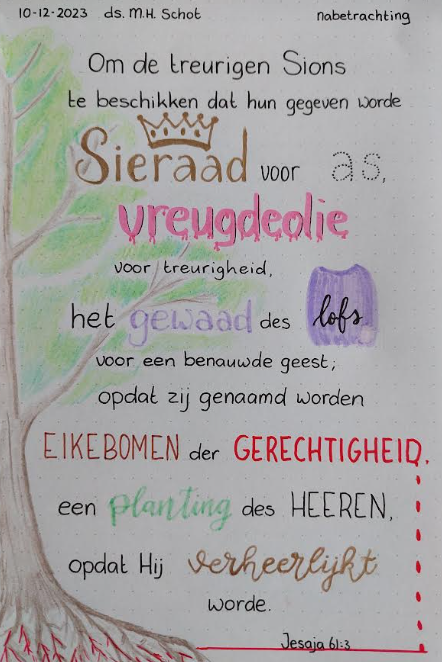 10-12-2023 ds. M.H. Schot nabetrachting
Om de treurigen Sions
te beschikken dat hun gegeven worde
Sieraad voor as,
vreugdeolie
voor treurigheid,
het gewaad des lofs
voor een benauwde geest;
opdat zij genaamd worden
EIKEBOMEN der GERECHTIGHEID,
een planting des HEEREN,
opdat Hij verheerlijkt
worde.
Jesaja 61:3